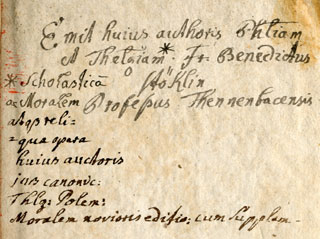 Emit huius authoris Phliam
A Theǫiam * Fr. Benedictus
* Scholasticā Höklin
ac Moralem Profeſsus Thennenbacensis
atqs reli=
=qua opera
huius auctoris
jus canonic:
Thlg: Polem:
Moralem novioris editio: cum Supplem-